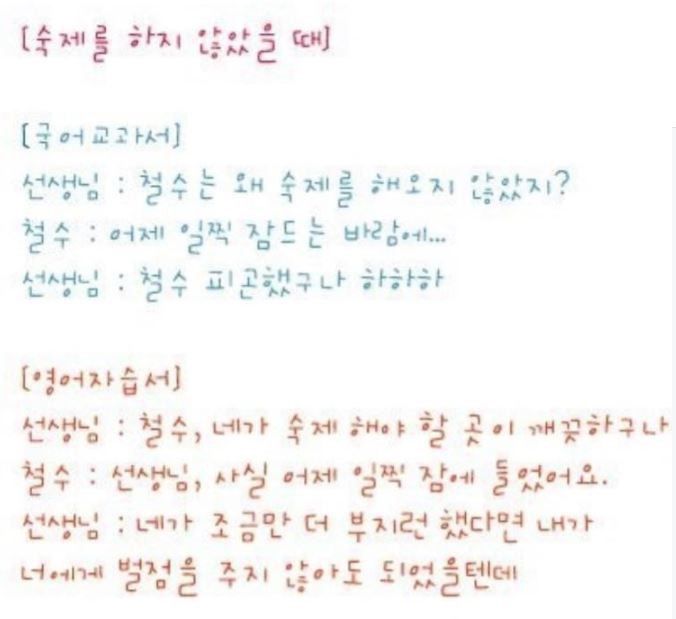 [숙제를 하지 않았을 때]
[국어교과서]
선생님 : 철수는 왜 숙제를 해오지 않았지?
철수 : 어제 일찍 잠드는 바람에...
선생님 : 철수 피곤했구나 하하하
[영어자습서]
선생님 : 철수, 네가 숙제 해야 할 곳이 깨끗하구나
철수 : 선생님, 사실 어제 일찍 잠에 들었어요.
선생님 : 네가 조금만 더 부지런 했다면 내가
너에게 벌점을 주지 않아도 되었을텐데